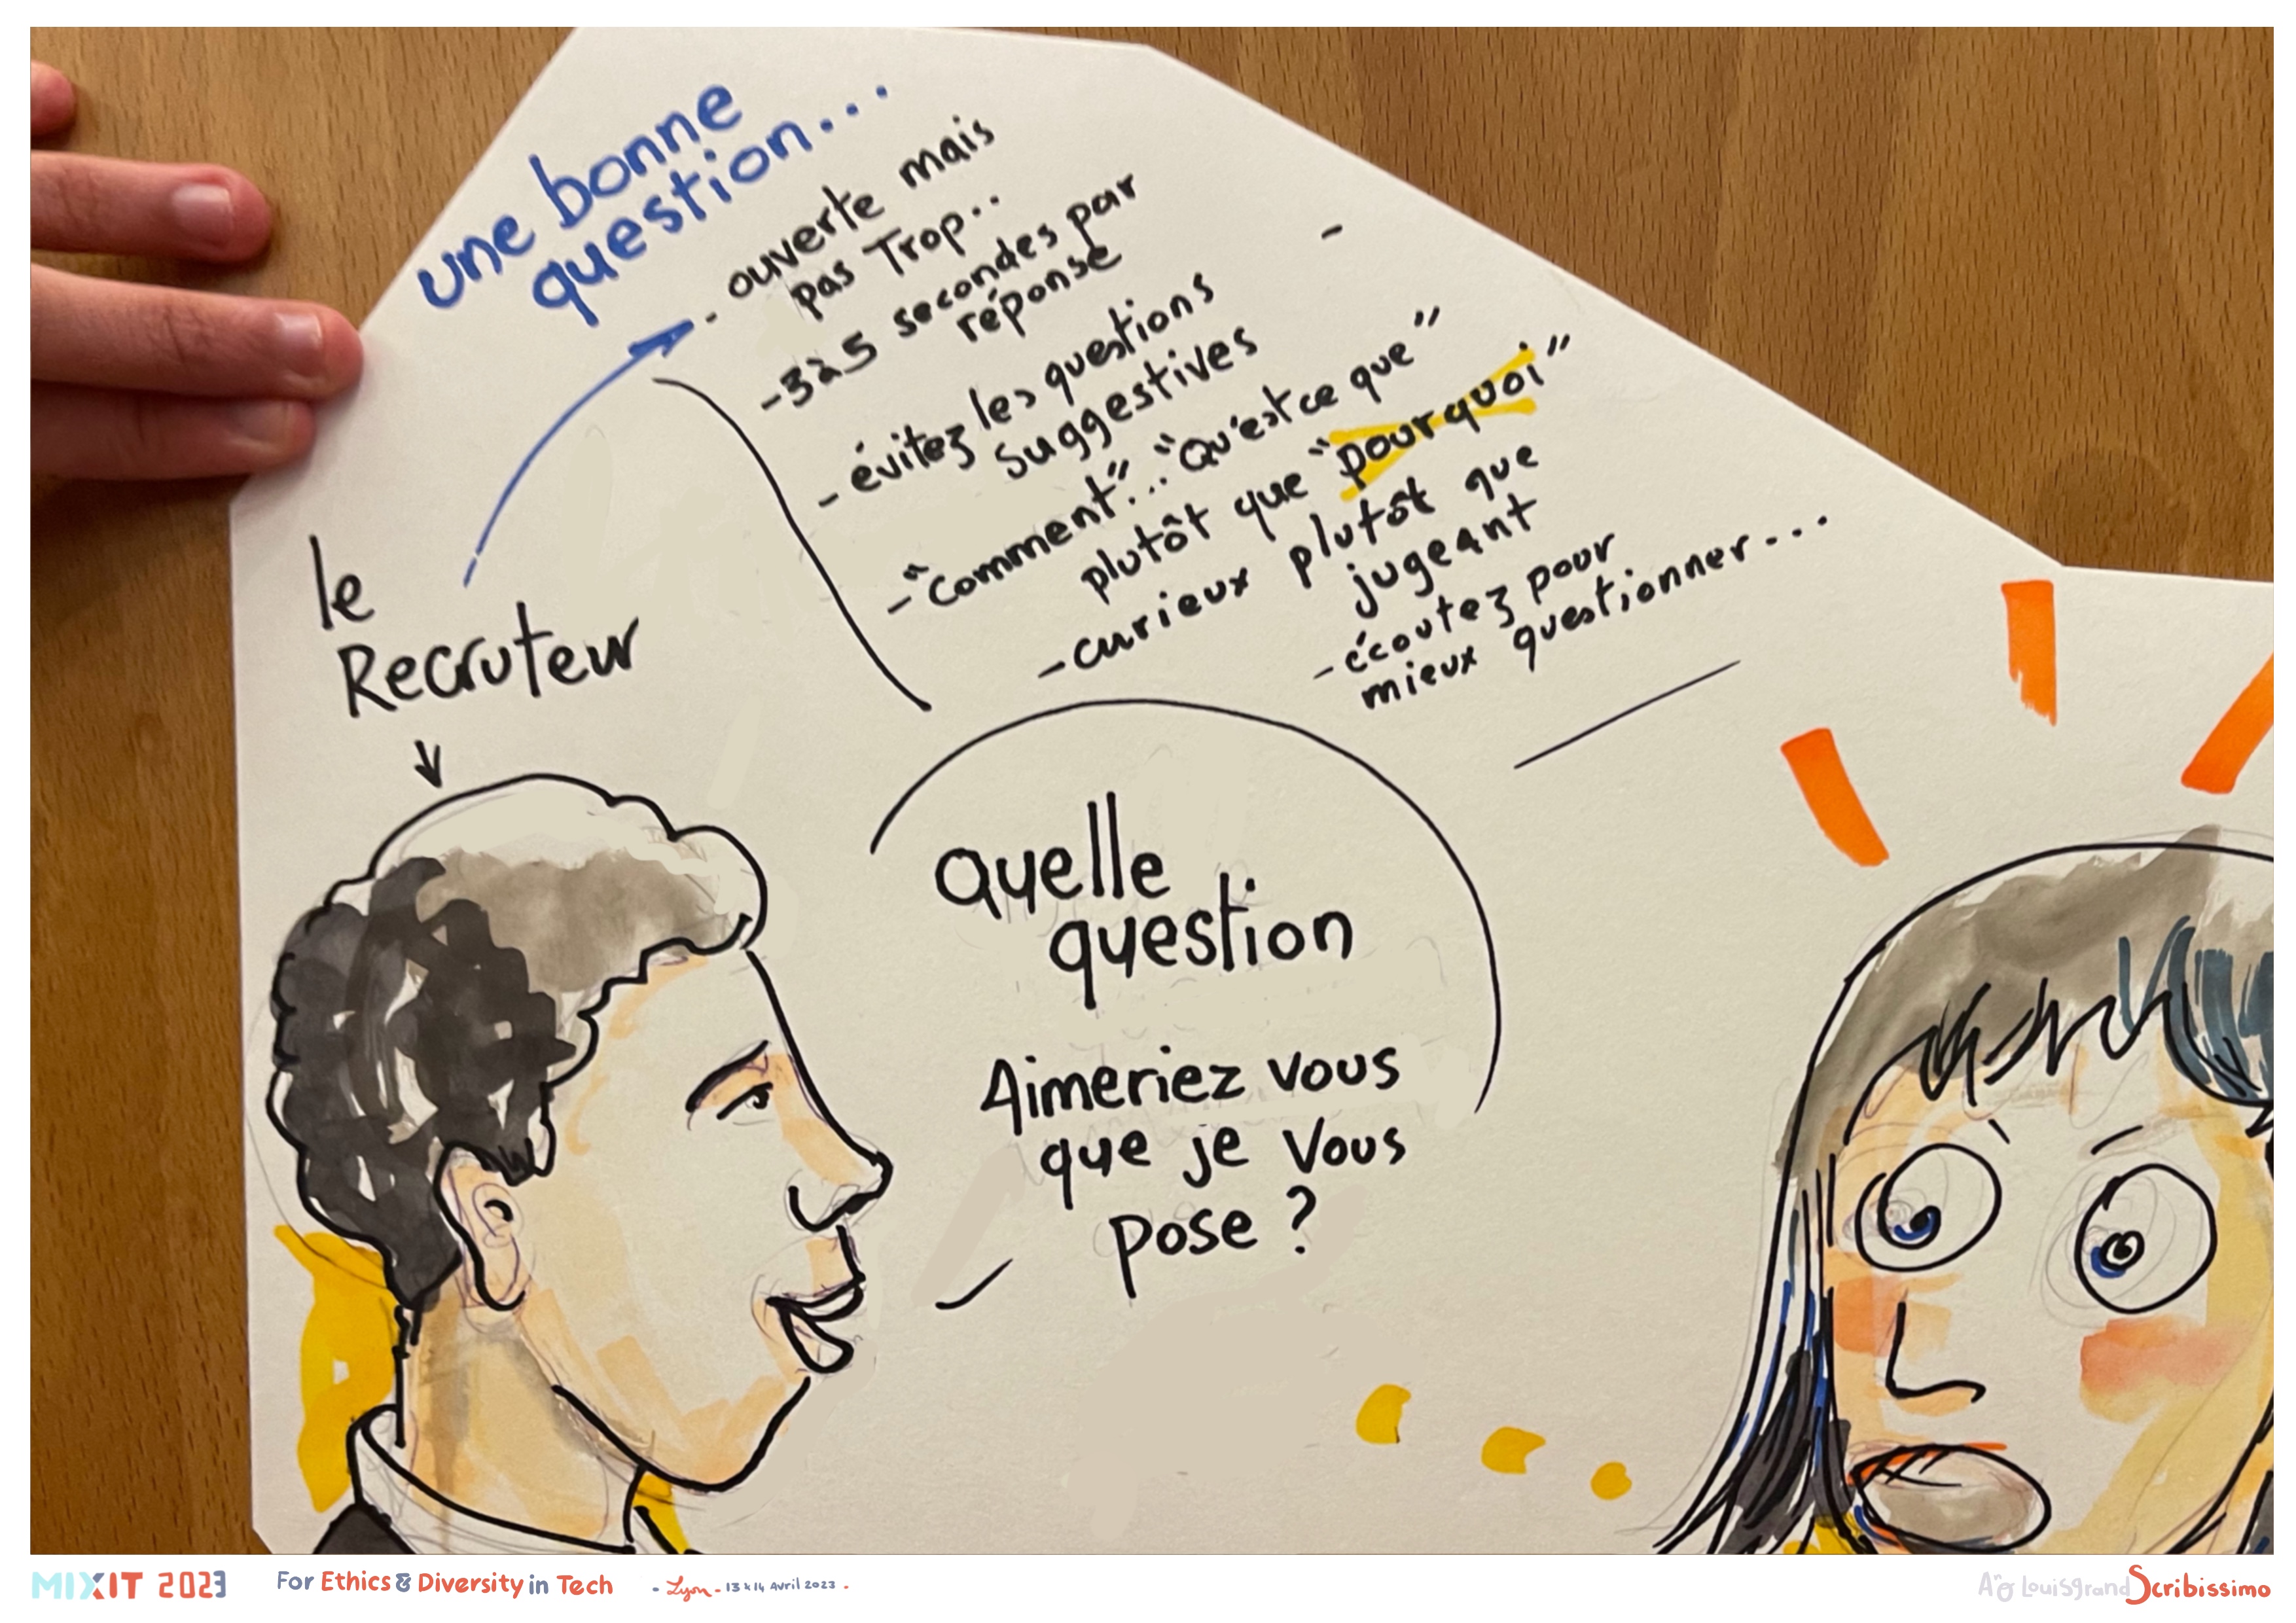 une bonne
question...
- ouverte mais
pas Trop..
- 3 à 5 secondes par
réponse
- évitez les questions
suggestives
- "Comment"... "Qu'est ce que"
plutôt que "pourquoi"
- curieux plutôt que
jugeant
- écoutez pour
mieux questionner...
le
Recruteur
quelle
question
Aimeriez vous
que je vous
pose ?
MIXIT 2023 For Ethics & Diversity in Tech - Lyon - 13 & 14 Avril 2023 -
Louisgrand Scribissimo